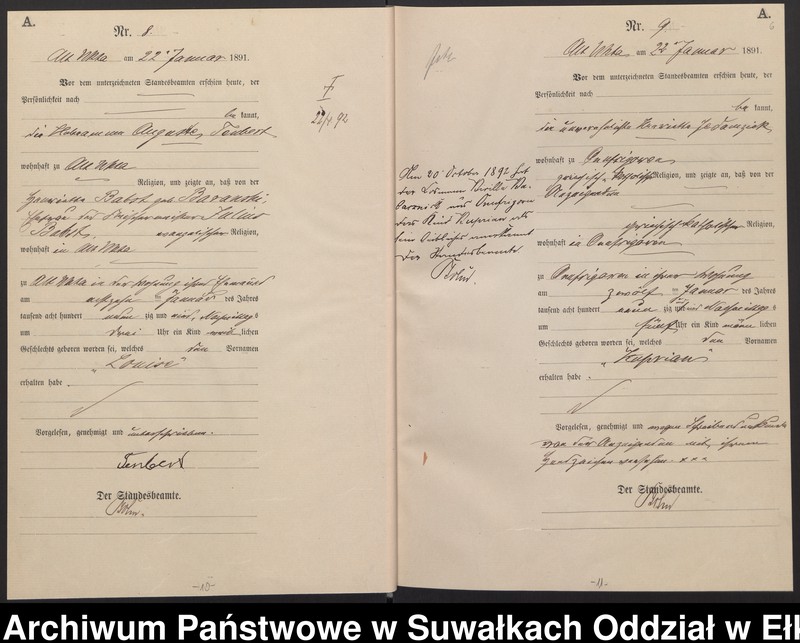 A.
Nr. 8.
Alt Ukta am 22. Januar 1891.
Vor dem unterzeichneten Standesbeamten erschien heute, der
Persönlichkeit nach
be kannt,
die Hebamme Auguste Teubert
wohnhaft zu Alt Ukta
Religion, und zeigte an, daß von der
Henriette Babst geb. Baranski,
Ehefrau des Julius
Babst, evangelischer Religion,
wohnhaft in Alt Ukta
zu Alt Ukta in der Wohnung ihres Ehemannes
am achtzehn ten Januar des Jahres
tausend acht hundert neun zig und eins, Nachmittags
um drei Uhr ein Kind weib lichen
Geschlechts geboren worden sei, welches den Vornamen
"Louise"
erhalten habe.
Vorgelesen, genehmigt und unterschrieben.
Teubert
Der Standesbeamte.
-10-
I
22/4 92
A.
6
Nr. 9.
Alt Ukta am 22. Januar 1891.
Vor dem unterzeichneten Standesbeamten erschien heute, der
Persönlichkeit nach
be kannt,
die unverehelichte Henriette
wohnhaft zu Onufrigowen
griechisch katholischer Religion, und zeigte an, daß von der
Anzeigenden
griechisch katholischer Religion,
wohnhaft in Onufrigowen
zu Onufrigowen in ihrer Wohnung
am zwölf ten Januar des Jahres
tausend acht hundert neun zig und eins Nachmittags
um fünf Uhr ein Kind männ lichen
Geschlechts geboren worden sei, welches den Vornamen
"Kuprian"
erhalten habe.
Vorgelesen, genehmigt und wegen
von der Anzeigenden mit ihrem
Handzeichen versehen xxx
Der Standesbeamte.
Am 20. October 1892 hat
der
aus Onufrigowen
das Kind Kuprian als
sein anerkannt
Der Standesbeamte
-11-
Archiwum Państwowe w Suwałkach Oddział w Eł